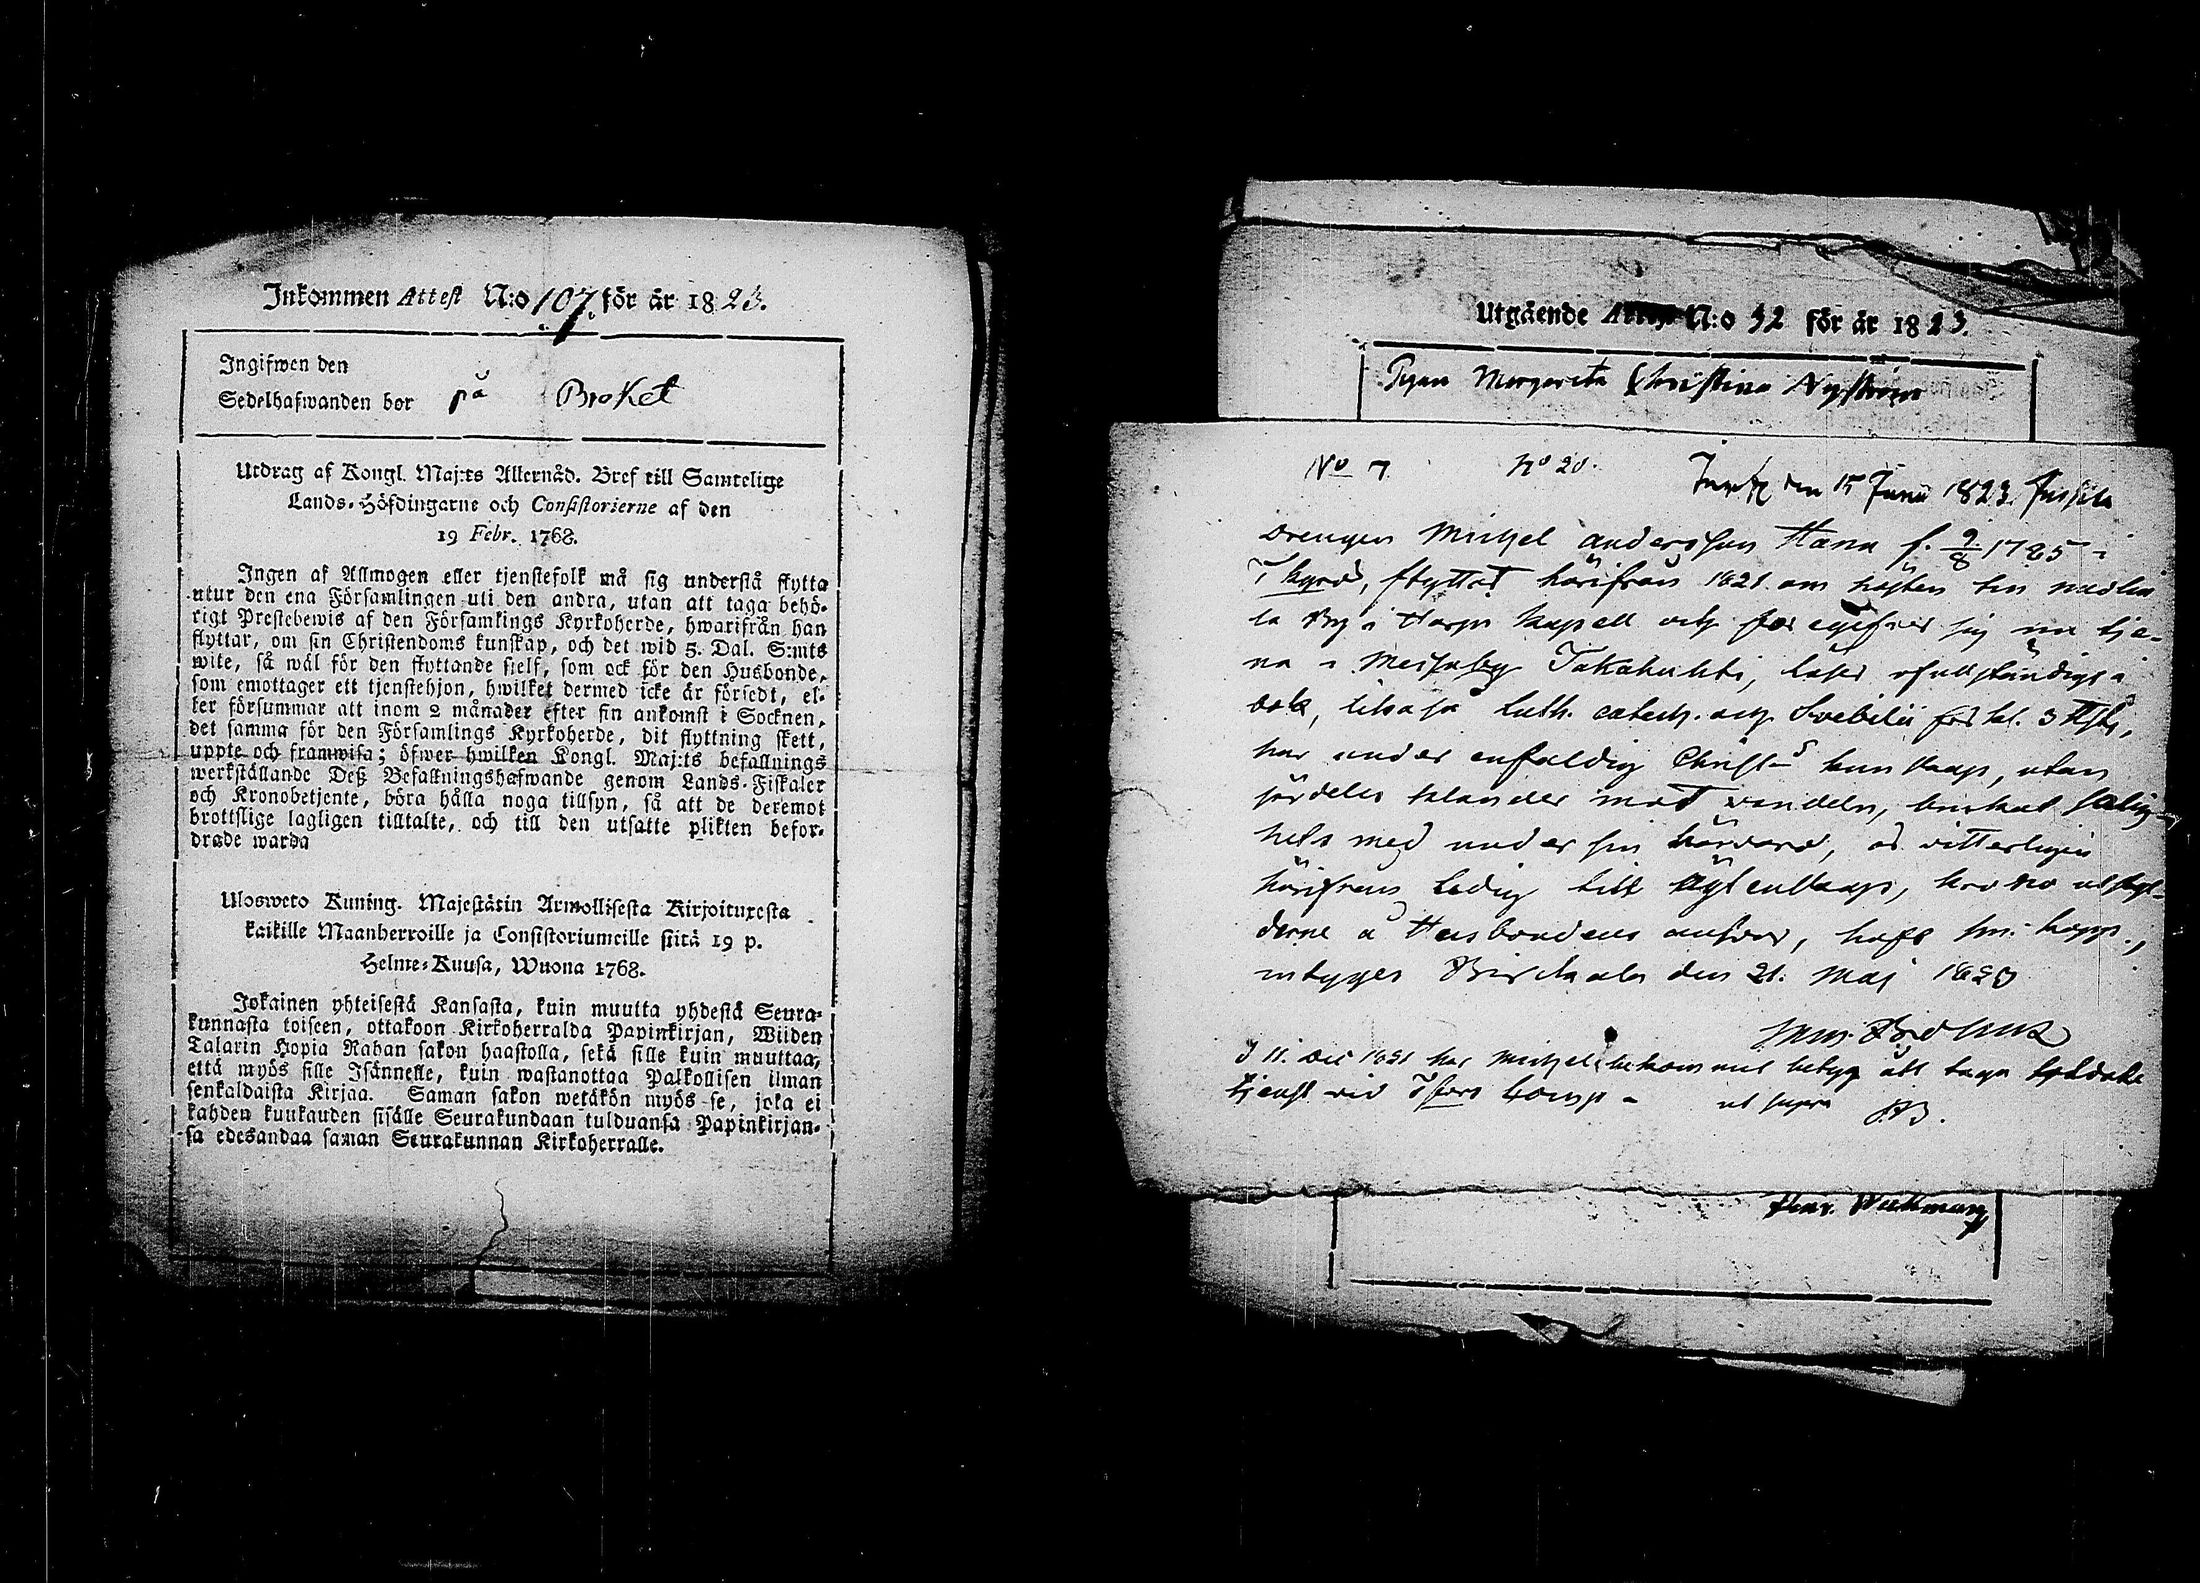 Inkommen Attest N:o 107. för år 1823.
Ingifwen den
Sedelhafwanden bor på Broket
Utdrag af Kongl. Maj:ts Allernåd. Bref till Samtelige
Lands-Höfdingarne och Consistorierne af den
19 Febr. 1768.
Ingen af Allmogen eller tjenstefolk må sig understå flytta
utur den ena Församlingen uti den andra, utan att taga behö-
rigt Prestebewis af den Församlings Kyrkoherde, hwarifrån han
flyttar, om sin Christendoms kunskap, och det wid 5. Dal. S:mts
wite, så wäl för den flyttande sielf, som ock för den Husbonde,
som emottager ett tjenstehjon, hwilket dermed icke är försedt, el-
ler försummar att inom 2 månader efter sin ankomst i Socknen,
det samma för den Församlings Kyrkoherde, dit flyttning skett,
uppte och framwisa; öfwer hwilken Kongl. Maj:ts befallnings
werkställande Deß Befallningshafwande genom Lands-Fiskaler
och Kronobetjente, böra hålla noga tillsyn, så att de deremot
brottslige lagligen tilltalte, och till den utsatte plikten befor-
drade warda
Ulosweto Kuning. Majestätin Armollisesta Kirjoituxesta
kaikille Maanherroille ja Consistoriumeille siitä 19 p.
Helme-Kuusa, Wuona 1768.
Jokainen yhteisestä Kansasta, kuin muutta yhdestä Seura-
kunnasta toiseen, ottakoon Kirkoherralda Papinkirjan, Wiiden
Talarin Hopia Rahan sakon haastolla, sekä sille kuin muuttaa,
että myös sille Isännelle, kuin wastanottaa Palkollisen ilman
senkaldaista Kirjaa. Saman sakon wetäkön myös se, joka ei
kahden kuukauden sisälle Seurakundaan tulduansa Papinkirjan-
sa edesandaa saman Seurakunnan Kirkoherralle.
Utgående N:o 32 för år 1823.
Pigan Margareta Christina Nyström
No 7 No 20. den 15 Junii 1823.
Drengen Michel Andersson Hana f. 9/8 1785 i
T Kyrö, flyttat härifrån 1821 om hösten till
la By i Harju Kapell och sig nu tje-
na i Messuby Takahuhti, läser ofullständigt i
bok, likaså Luth. catech. och Svebilii
har under enfaldig Christ-s kunskap, utan
särdeles klander mot vandeln, brukat salig-
hets med under sin härvaro, är vitterligen
härifrån ledig till ägtenskap, krono utskyl-
derne å Husbondens ansvar, haft kopp.,
intygar Birckala den 21. Maj 1823
d 11. Dec 1821 har Michel bekommit betyg att taga soldate
tjenst vid ut supra